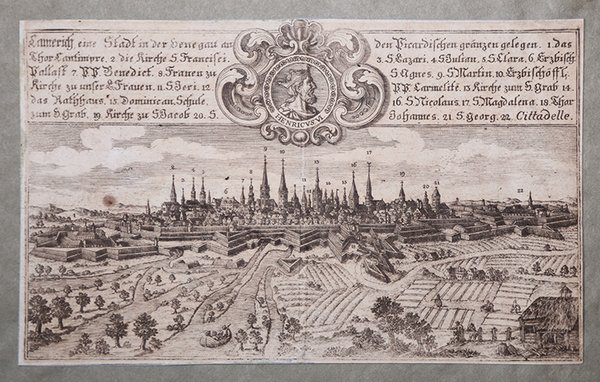 Camerich eine Stadt in der Henegau an den Picardischen gränzen gelegen. 1. das
Thor Cantimpre, 2 die Kirche S Francisci. 3. S Lazari, 4. S Julian, 5. S Clara, 6. Erzbisch
Pallast 7. PP. Benedict. 8. Frauen zu S Agnes. 9. S Martin. 10. Erzbischöffl.
Kirche zu unser L. Frauen, 11. S Geri. 12 PP. Carmelite. 13 Kirche zum S Grab 14
das Rathhaus, 15 Dominican. Schule, 16. S Nicolaus, 17. S Magdalena. 18. Thor
zum S Grab, 19 Kirche zu S Jacob 20. S. Johannes. 21 S. Georg. 22. Cittadelle.
HENRICVS VI